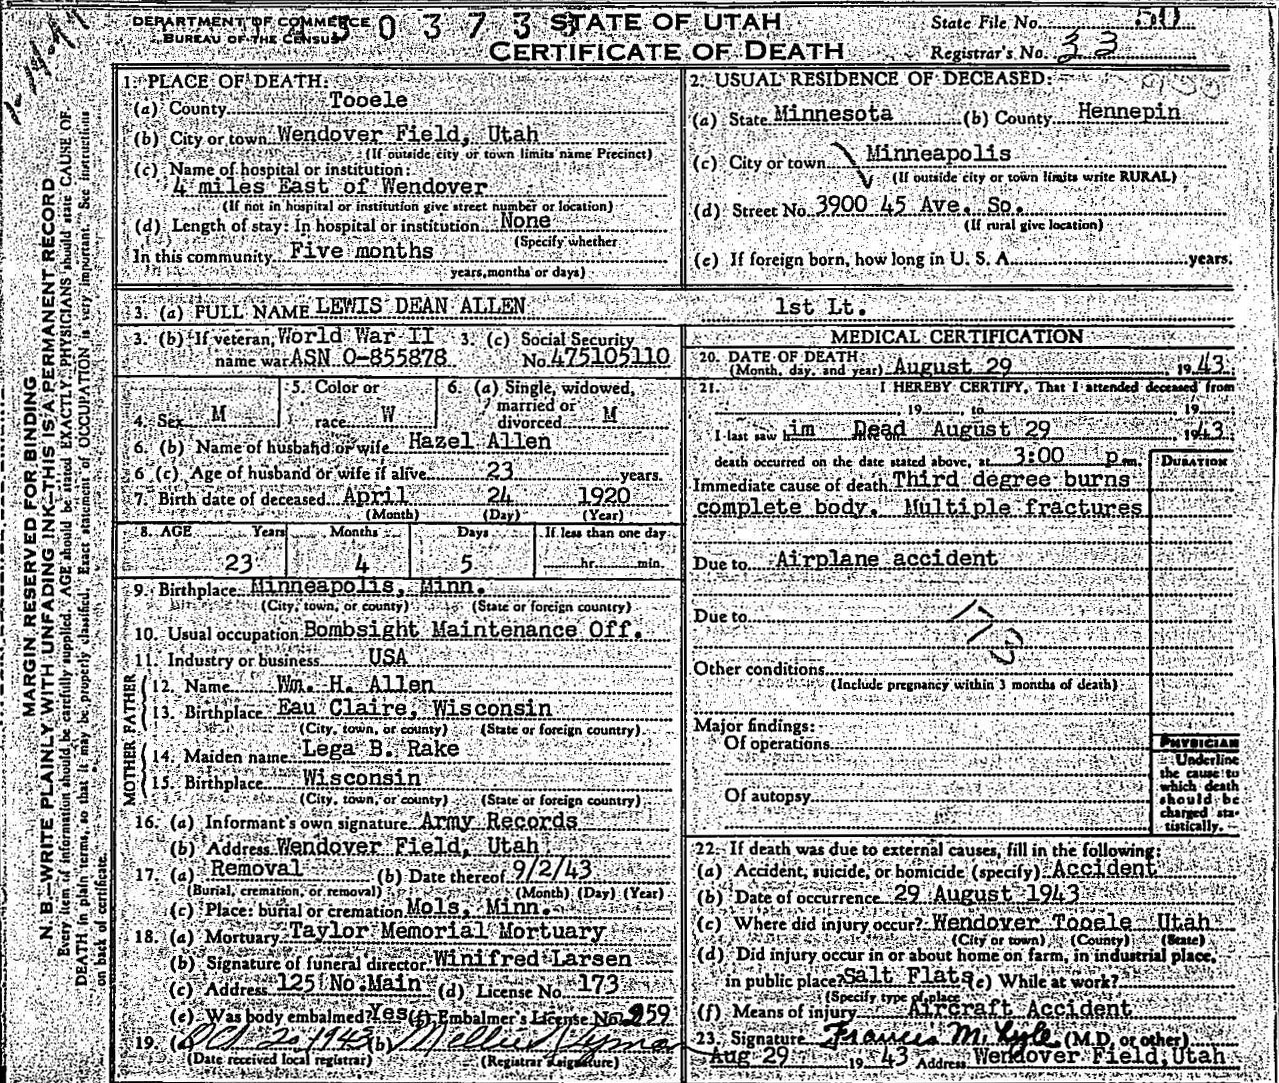 DEPARTMENT OF COMMERCE
BUREAU OF THE CENSUS
0 3 7 3
STATE OF UTAH
CERTIFICATE OF DEATH
State File No. 50
Registrar's No. 33
MARGIN RESERVED FOR BINDING
N. B.—WRITE PLAINLY WITH UNFADING INK—THIS IS A PERMANENT RECORD
Every item of information should be carefully supplied. AGE should be stated EXACTLY. PHYSICIANS should state CAUSE OF
DEATH in plain terms, so that it may be properly classified. Exact statement of OCCUPATION is very important. See instructions
on back of certificate.
1. PLACE OF DEATH:
(a) County Tooele
(b) City or town Wendover Field, Utah
(If outside city or town limits name Precinct)
(c) Name of hospital or institution:
4 miles East of Wendover
(If not in hospital or institution give street number or location)
(d) Length of stay: In hospital or institution None
(Specify whether
In this community Five months
years, months or days)
2. USUAL RESIDENCE OF DECEASED:
(a) State Minnesota (b) County Hennepin
(c) City or town Minneapolis
(If outside city or town limits write RURAL)
(d) Street No. 3900 45 Ave. So.
(If rural give location)
(e) If foreign born, how long in U. S. A. years.
3. (a) FULL NAME LEWIS DEAN ALLEN 1st Lt.
3. (b) If veteran, World War II 3. (c) Social Security
name war ASN O-855878 No. 475105110
4. Sex M 5. Color or race W 6. (a) Single, widowed, married or divorced M
6. (b) Name of husband or wife Hazel Allen
6 (c) Age of husband or wife if alive 23 years.
7. Birth date of deceased April 24 1920
(Month) (Day) (Year)
8. AGE Years Months Days If less than one day
23 4 5 hr. min.
9. Birthplace Minneapolis, Minn.
(City, town, or county) (State or foreign country)
10. Usual occupation Bombsight Maintenance Off.
11. Industry or business USA
FATHER
12. Name Wm. H. Allen
13. Birthplace Eau Claire, Wisconsin
(City, town, or county) (State or foreign country)
MOTHER
14. Maiden name Lega B. Rake
15. Birthplace Wisconsin
(City, town, or county) (State or foreign country)
16. (a) Informant's own signature Army Records
(b) Address Wendover Field, Utah
17. (a) Removal (b) Date thereof 9/2/43
(Burial, cremation, or removal) (Month) (Day) (Year)
(c) Place: burial or cremation Mols, Minn.
18. (a) Mortuary Taylor Memorial Mortuary
(b) Signature of funeral director Winifred Larsen
(c) Address 125 No. Main (d) License No. 173
(e) Was body embalmed? Yes (f) Embalmer's License No. 259
19. (a) Oct. 2, 1943 (b)
(Date received local registrar) (Registrar's signature)
MEDICAL CERTIFICATION
20. DATE OF DEATH:
(Month, day, and year) August 29 , 1943
21. I HEREBY CERTIFY, That I attended deceased from
, 19 , to , 19
I last saw him Dead August 29 , 1943
death occurred on the date stated above, at 3:00 p m.
DURATION
Immediate cause of death Third degree burns
complete body. Multiple fractures
Due to Airplane accident
Due to
173
Other conditions
(Include pregnancy within 3 months of death)
Major findings:
Of operations
Of autopsy
PHYSICIAN
Underline
the cause to
which death
should be
charged sta-
tistically.
22. If death was due to external causes, fill in the following:
(a) Accident, suicide, or homicide (specify) Accident
(b) Date of occurrence 29 August 1943
(c) Where did injury occur? Wendover Tooele Utah
(City or town) (County) (State)
(d) Did injury occur in or about home on farm, in industrial place,
in public place? Salt Flats (e) While at work?
(Specify type of place
(f) Means of injury Aircraft Accident
23. Signature Francis M. Lyle (M.D. or other)
Aug 29 19 43 Address Wendover Field, Utah